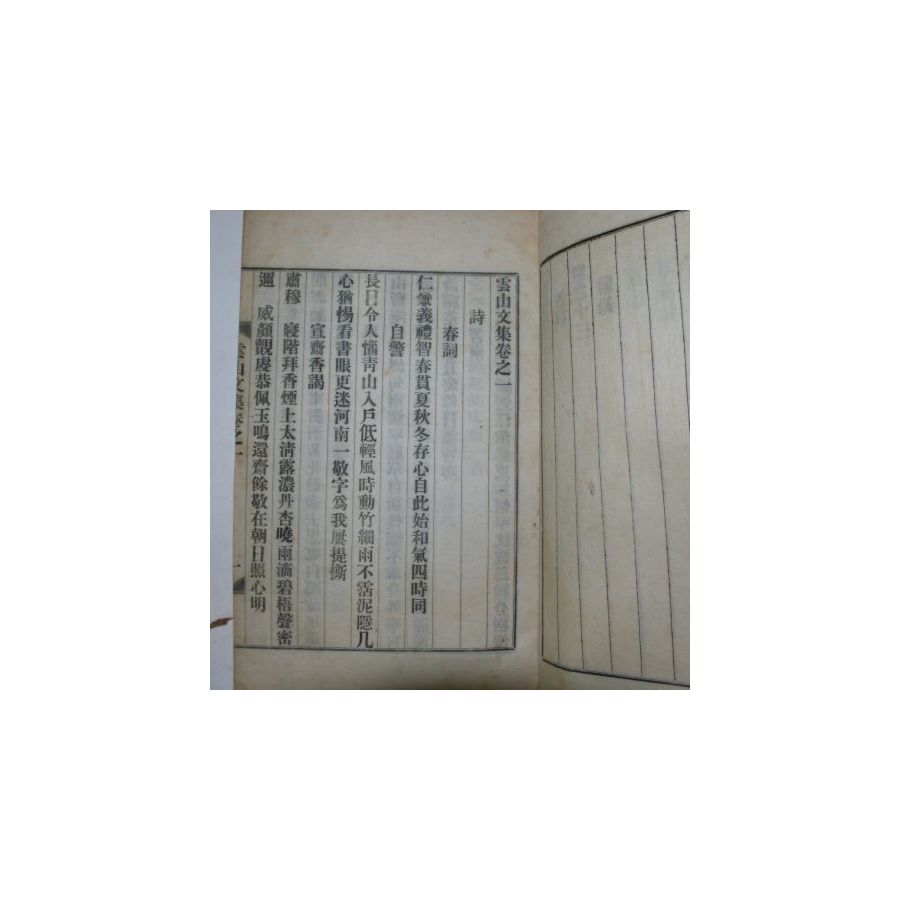 雲山文集卷之一
詩
春詞
仁兼義禮智春貫夏秋冬存心自此始和氣四時同
自警
長日令人惱靑山入戶低輕風時動竹細雨不活泥隱几
心猶惕看書眼更迷河南一敬字爲我屢提撕
宣齋香謁
肅穆 寢階拜香煙上太淸露濃丹杏曉雨滴碧梧聲密
邇 威顏覿虔恭佩玉鳴還齋餘敬在朝日照心明
雲山文集卷之一